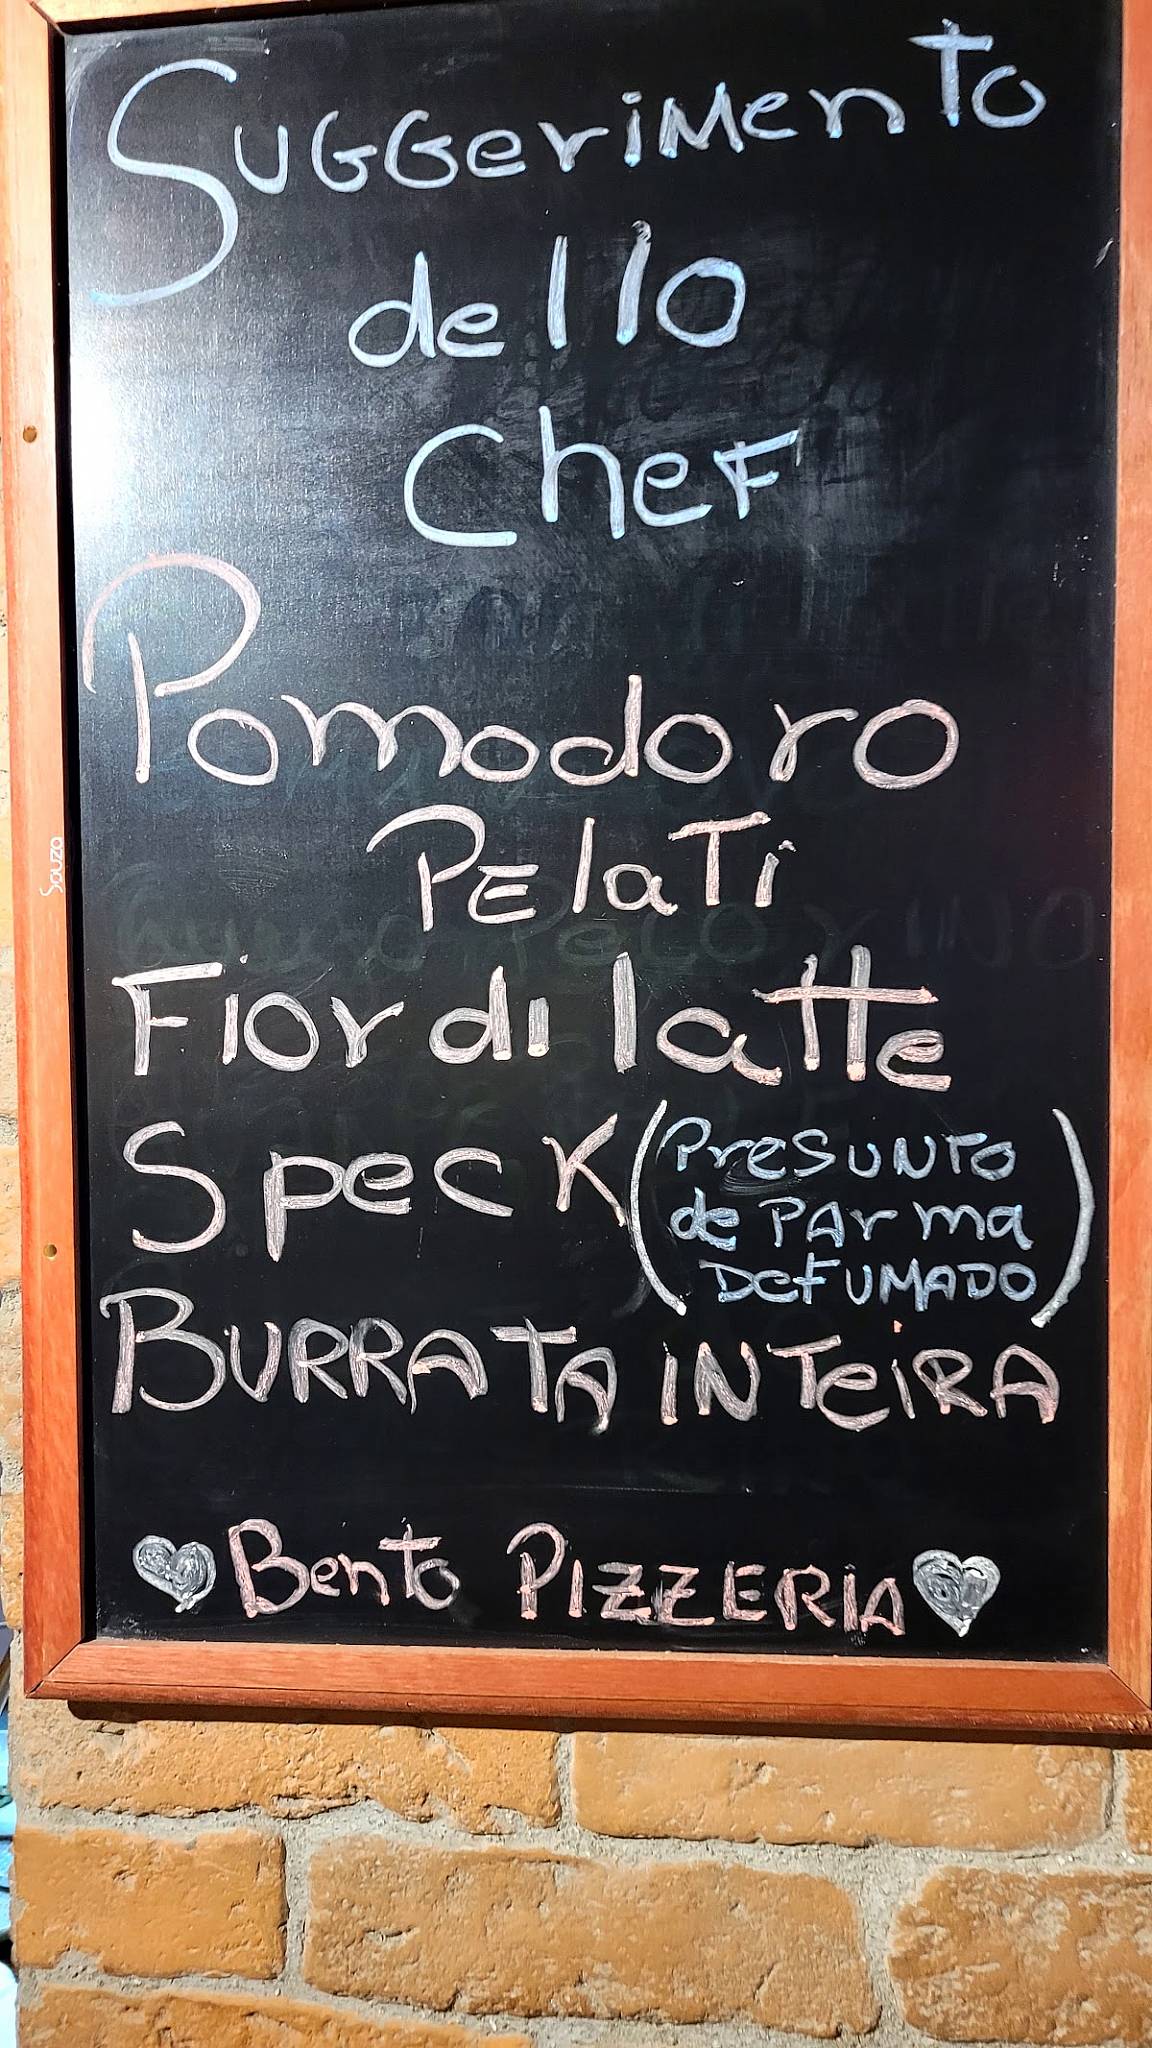 SUGGerimento
dello
Chef
Pomodoro
PElaTi
Fior di latte
Speck (PreSUNTO
de PArma
DeFUMADO)
BURRATA iNTeiRA
Bento PIZZERIA
Souza